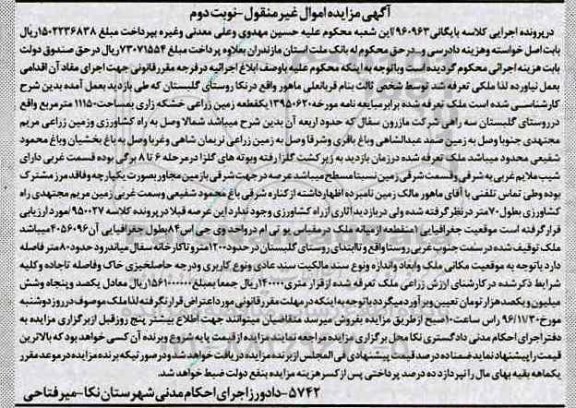 آگهی مزایده اموال غیر منقول-نوبت دوم
در پرونده اجرایی کلاسه بایگانی ۹۶۰۹۶۳ این شعبه محکوم علیه حسین مهدوی وعلی معدنی وغیره بپرداخت مبلغ ۱۵۰۲۲۳۶۸۳۸ ریال
بابت اصل خواسته وهزینه دادرسی و... در حق محکوم له بانک ملت استان مازندران بعلاوه پرداخت مبلغ ۷۳۰۷۱۵۵۴ ریال در حق صندوق دولت
بابت هزینه اجرائی محکوم گردیده است وباتوجه به اینکه محکوم علیه باوصف ابلاغ اجرائیه در فرجه مقرر قانونی جهت اجرای مفاد آن اقدامی
بعمل نیاورده لذا ملکی تعرفه شد توسط شخص ثالث بنام قربانعلی ماهور واقع در نکا روستای گلبستان که طی بازدید بعمل آمده بدین شرح
کارشناسی شده است ملک تعرفه شده برابر مبایعه نامه مورخه ۱۳۹۵۰۶۲۰ یکقطعه زمین زراعی خشکه زاری بمساحت ۱۱۱۵۰ مترمربع واقع
در روستای گلبستان سه راهی شرکت مازرون سفال که حدود اربعه آن بدین شرح میباشد شمالا وصل به راه کشاورزی وزمین زراعی مریم
مجتهدی جنوبا وصل به زمین صمد عبدالشاهی وباغ باقری وشرقا وصل به زمین زراعی نریمان شاهی وغربا وصل به باغ بخشیان وباغ محمود
شفیعی محدود میباشد ملک تعرفه شده در زمان بازدید به زیر کشت گلزا رفته وبوته های گلزا در مرحله ۶ تا ۸ برگی بوده قسمت غربی دارای
شیب ملایم غربی به شرقی وقسمت شرقی زمین نسبتا مسطح میباشد عرصه در جهت شرقی با زمین مجاور بصورت یکپارچه وفاقد مرز مشترک
بوده وطی تماس تلفنی با آقای ماهور مالک زمین نامبرده اظهار داشته از کناره شرقی باغ محمود شفیعی وبسمت غربی زمین مریم مجتهدی راه
کشاورزی بطول ۷۰متر در نظر گرفته شده ولی در بازدید آثاری از راه کشاورزی وجود ندارد این عرصه قبلا در پرونده کلاسه ۹۵۰۰۲۷ مورد ارزیابی
قرار گرفته است موقعیت جغرافیایی ۱منقطعه از میانه ملک در مقیاس یو تی ام در واحد وی جی اس۸۴ بطول جغرافیایی آن ۴۰۵۶۰۹۶ میباشد
ملک توقیف شده در سمت جنوب غربی روستا واقع و تا ابتدای روستای گلبستان در حدود ۱۲۰۰متر و تا کارخانه سفال میاندرود حدود ۸۰متر فاصله
دارد با توجه به موقعیت مکانی ملک وابعاد واندازه ونوع سند مالکیت سند عادی ونوع کاربری ودرجه حاصلخیزی خاک وفاصله تا جاده و کلیه
شرایط ذکر شده در کارشناسی ارزش زراعی ملک تعرفه شده از قرار متری ۱۴۰۰۰۰ ریال جمعا بمبلغ ۱۵۶۱۰۰۰۰۰۰ ریال معادل یکصد و پنجاه وشش
میلیون ویکصد هزار تومان تعیین وبرآورد میگردد باتوجه به اینکه در مهلت مقرر قانونی مورد اعتراض قرار نگرفته لذا ملک موصوف در روز دوشنبه
مورخ ۹۶/۱۱/۳۰ راس ساعت ۱۰صبح از طریق مزایده بفروش میرسد متقاضیان میتوانند جهت اطلاع بیشتر پنج روز قبل از برگزاری مزایده به
دفتر اجرای احکام مدنی دادگستری نکا محل برگزاری مزایده مراجعه نمایند مزایده از قیمت پایه شروع وبرنده آن کسی خواهد بود که بالاترین
قیمت را پیشنهاد نماید ضمنا ده درصد قیمت پیشنهادی فی المجلس از برنده مزایده دریافت خواهد شد ودر صورتیکه برنده مزایده در موعد مقرر
یکماهه بقیه بهای مال را نپردازد ده درصد پرداختی پس از کسر هزینه مزایده بنفع دولت ضبط خواهد شد.
۵۷۴۲-دادورز اجرای احکام مدنی شهرستان نکا-میرفتاحی